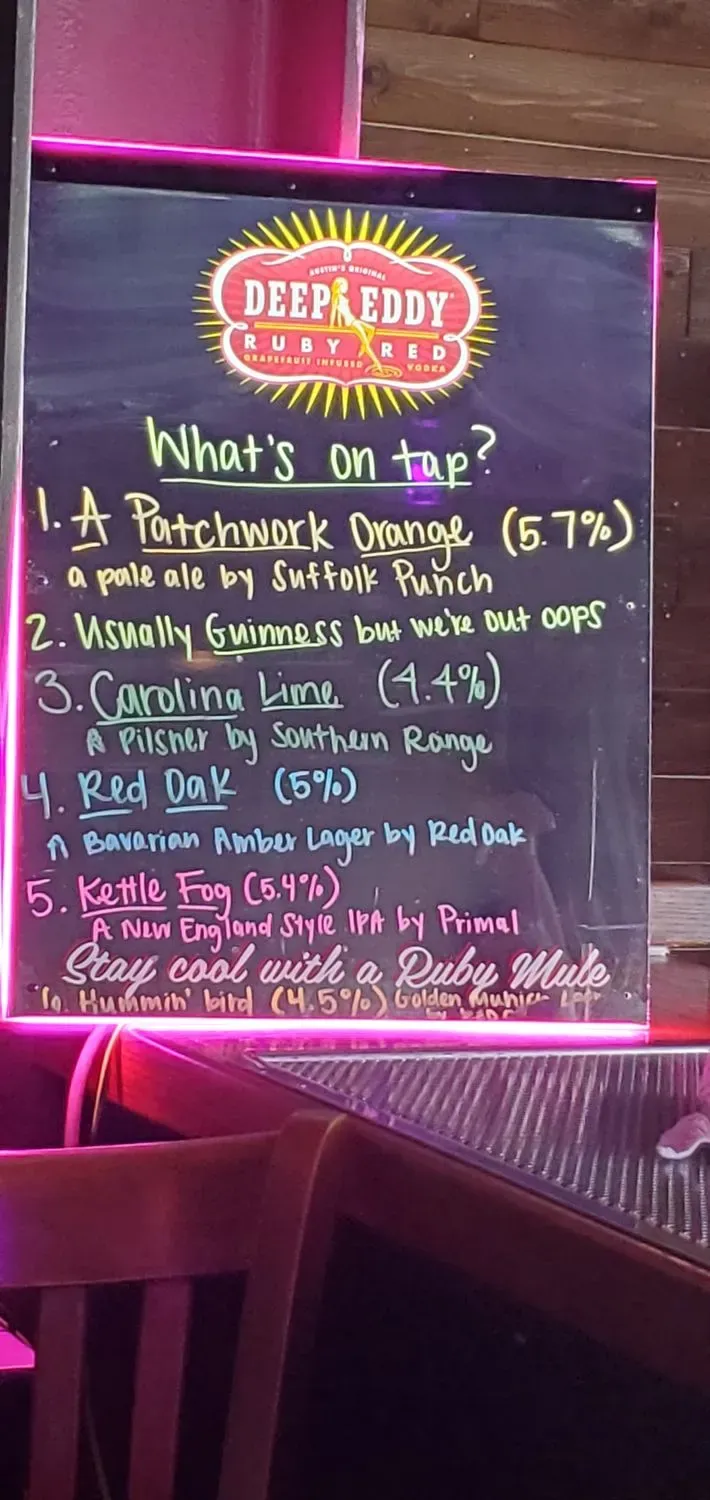 AUSTIN'S ORIGINAL
DEEP EDDY
RUBY RED
GRAPEFRUIT INFUSED VODKA
What's on tap?
1. A Patchwork Orange (5.7%)
a pale ale by Suffolk Punch
2. Usually Guinness but we're out oops
3. Carolina Lime (4.4%)
A Pilsner by Southern Range
4. Red Oak (5%)
A Bavarian Amber Lager by Red Oak
5. Kettle Fog (5.4%)
A New England Style IPA by Primal
Stay cool with a Ruby Mule
6. Hummin' bird (4.5%) Golden Munich